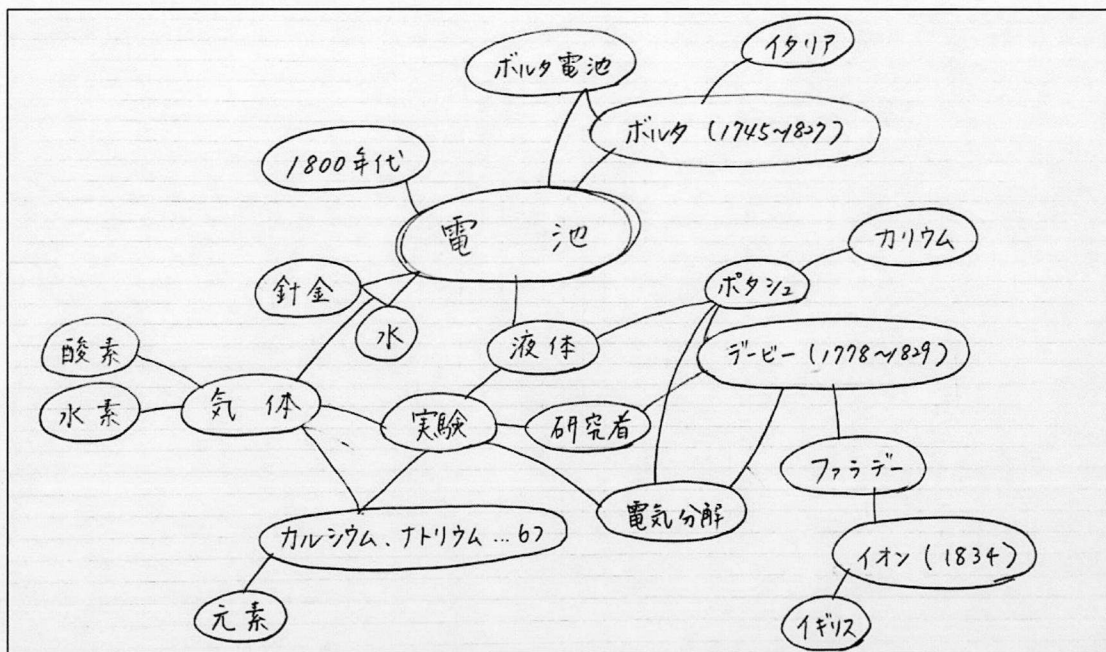 イタリア
ボルタ電池
ボルタ (1745~1827)
1800年代
電 池
カリウム
ポタシュ
針金
水
液体
デービー (1778~1829)
酸素
水素
気 体
実験
研究者
ファラデー
電気分解
カルシウム、ナトリウム…6つ
イオン (1834)
元素
イギリス